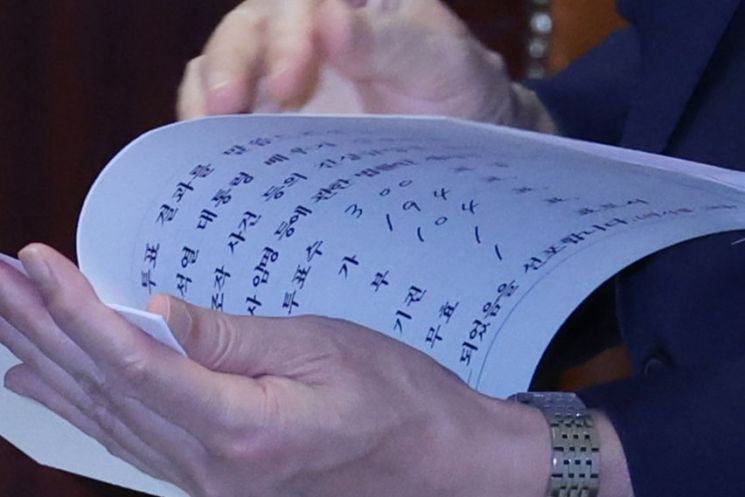 투표 결과를 말씀
석열 대통령 배우자
조작 사건 등의 진상규
사 임명 등에 관한 법률안
투표수 300
가 194
부 104
기권 1
무효 1
되었음을 선포합니다.